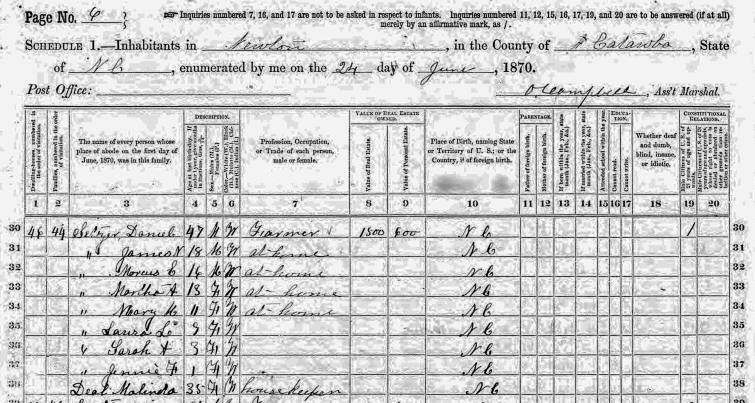 Page No. 6 } ☞ Inquiries numbered 7, 16, and 17 are not to be asked in respect to infants. Inquiries numbered 11, 12, 15, 16, 17, 19, and 20 are to be answered (if at all)
merely by an affirmative mark, as /.
SCHEDULE 1.—Inhabitants in Newton, in the County of Catawba, State
of N C, enumerated by me on the 24 day of June, 1870.
Post Office: O Campbell, Ass't Marshal.
DESCRIPTION. VALUE OF REAL ESTATE OWNED. PARENTAGE. EDUCATION. CONSTITUTIONAL RELATIONS.
Dwelling-houses, numbered in the order of visitation.
Families, numbered in the order of visitation.
The name of every person whose place of abode on the first day of June, 1870, was in this family.
Profession, Occupation, or Trade of each person, male or female.
Value of Real Estate.
Value of Personal Estate.
Place of Birth, naming State or Territory of U. S.; or the Country, if of foreign birth.
Father of foreign birth.
Mother of foreign birth.
If born within the year, state month (Jan., Feb., &c.)
If married within the year, state month (Jan., Feb., &c.)
Attended school within the year.
Cannot read.
Cannot write.
Whether deaf and dumb, blind, insane, or idiotic.
1 2 3 4 5 6 7 8 9 10 11 12 13 14 15 16 17 18 19 20
30 44 Daniel 47 M W Farmer 1500 600 N C / 30
31 " James N 18 M W at home N C 31
32 " Marcus C 16 M W at home N C 32
33 " Martha A 13 F W at home N C 33
34 " Mary 11 F W at home N C 34
35 " Laura F W N C 35
36 " Sarah A 3 F W N C 36
37 " Jennie F 1 F W N C 37
38 Deal Malinda 35 F W housekeeper N C 38
39 39